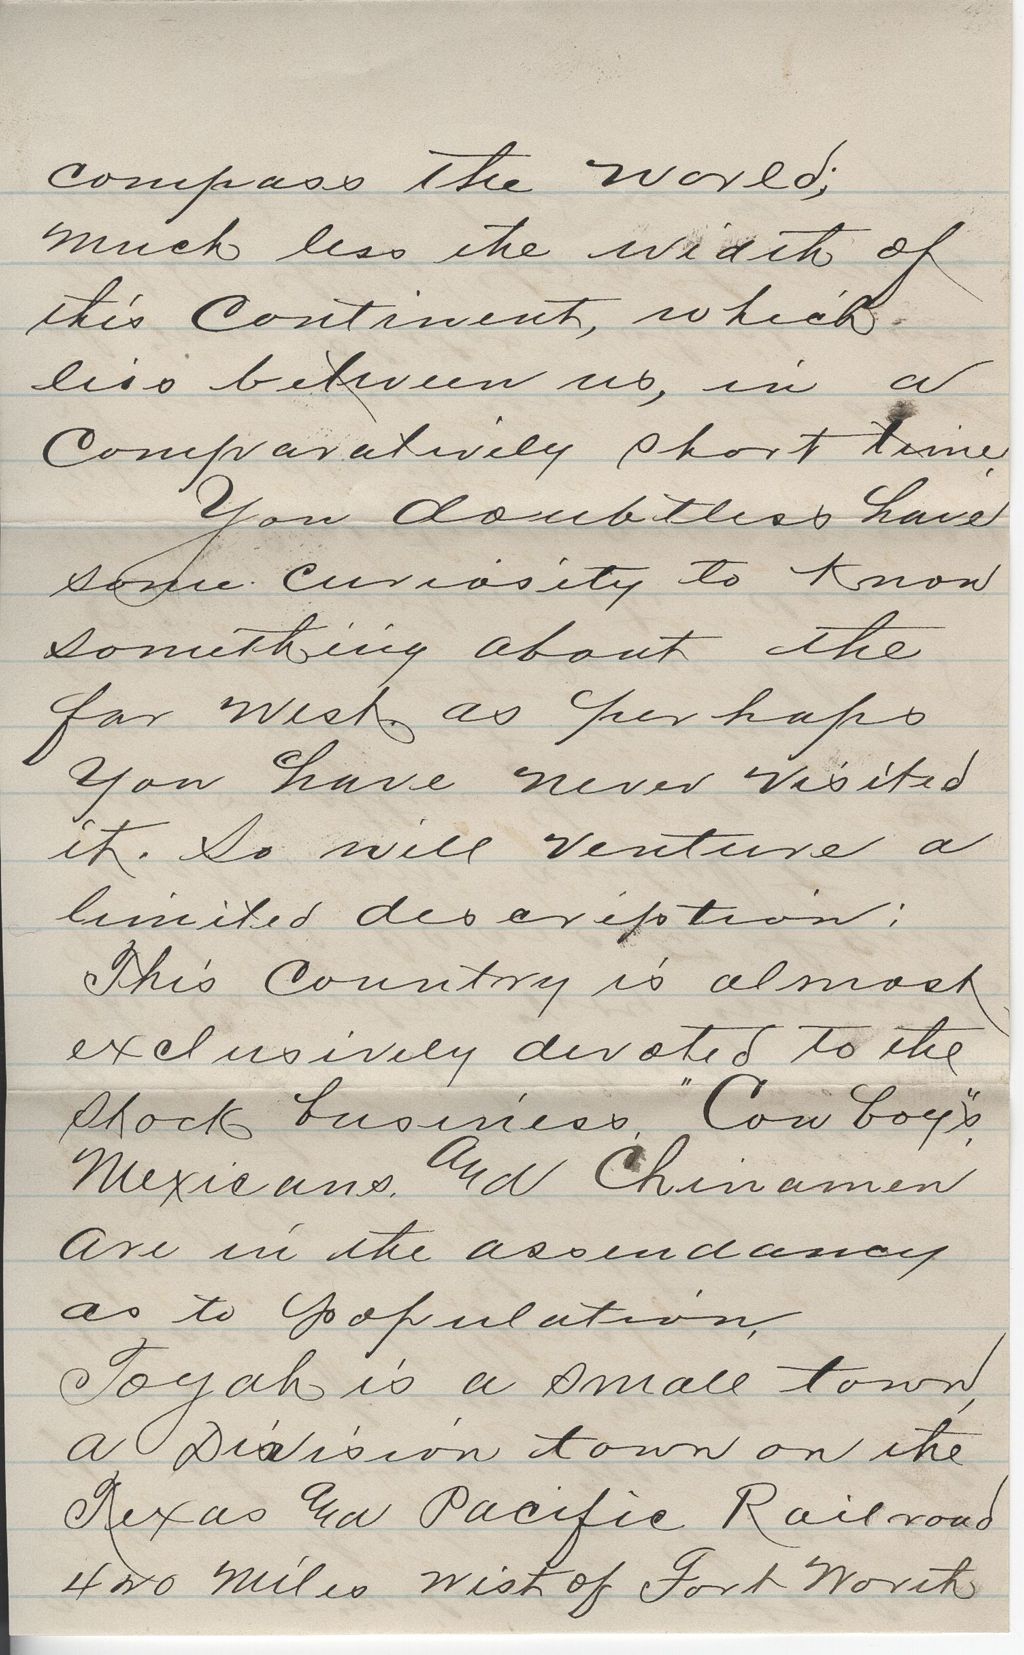 compass the world;
much less the width of
this Continent, which
lies between us, in a
Comparatively short time.
You doubtless have
some curiosity to know
something about the
far West. as perhaps
you have never visited
it. So will venture a
limited description:
This Country is almost
exclusively devoted to the
stock business, "Cow boy"s,
Mexicans, and Chinamen
are in the assendancy
as to population,
Toyah is a small town,
a Division town on the
Texas and Pacific Railroad
420 miles west of Fort Worth